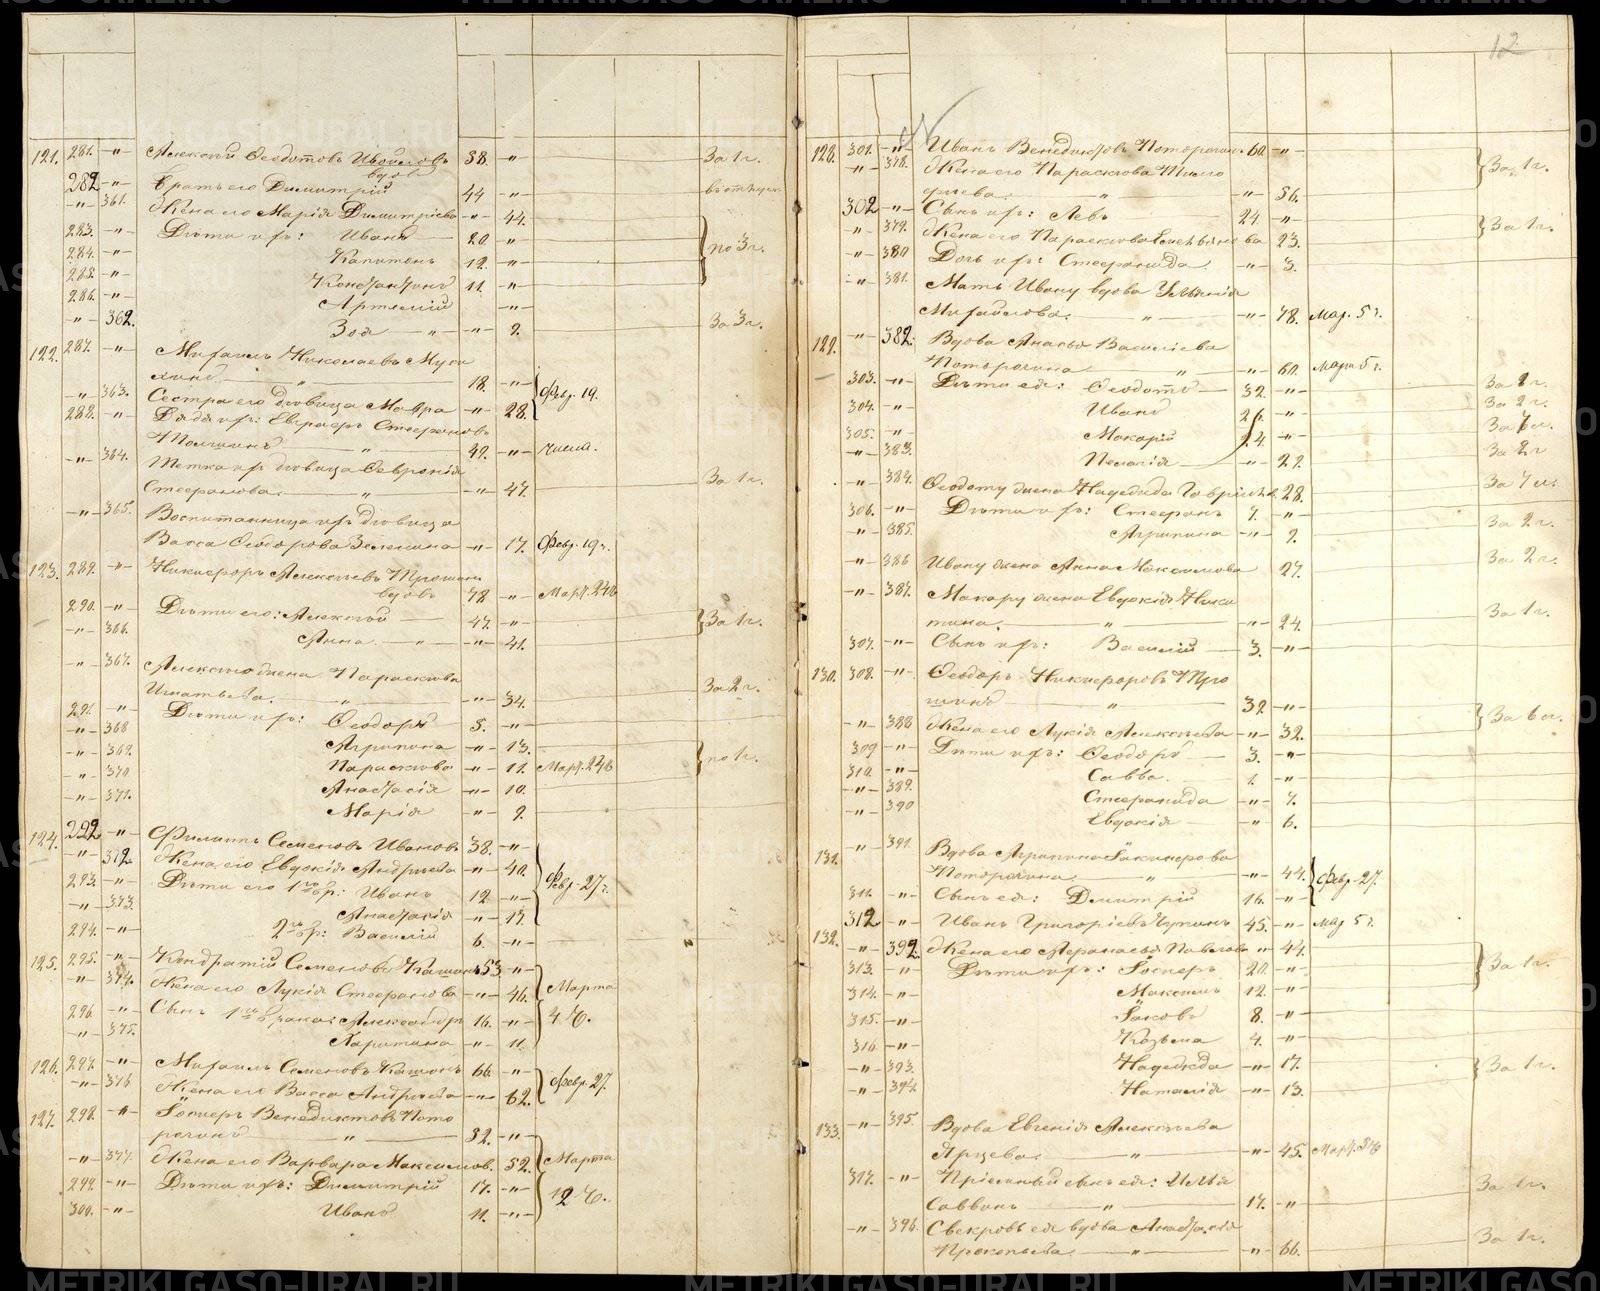 12
121. 281. -"- Алексей Ѳеодотовъ 58. -"- За 1 г.
вдов
282 -"- Братъ его Димитрій 44 -"-
-"- 361. Жена его Марія Димитріева -"- 44.
283. -"- Дѣти ихъ: Иванъ 20. -"- по 3 г.
284. -"- Капитонъ 12. -"-
285. -"- Константинъ 11. -"-
286. -"- Артемій -"-
-"- 362. Зоя -"- -"- 9. За 3 г.
122. 287. -"- Михаилъ Николаевъ
-"- 18. -"- Февр. 19.
-"- 363. Сестра его дѣвица Мавра -"- 28.
288. -"- Дядя ихъ: Евграфъ Стефановъ
-"- 42. -"-
-"- 364. Тетка ихъ дѣвица Февронія
Стефанова. -"- -"- 47. За 1 г.
-"- 365. Воспитанница ихъ дѣвица
Васса Ѳеодорова Зеленина -"- 17. Февр. 19 г.
123. 289. -"- Никифоръ Алексѣевъ
вдовъ 72 -"- Март. 24
290. -"- Дѣти его: Алексѣй 47. -"- За 1 г.
-"- 366. Анна -"- -"- 41.
-"- 367. Алексѣя жена Параскева
Игнатьева. -"- -"- 34. За 2 г.
291. -"- Дѣти ихъ: Ѳеодоръ 5. -"-
-"- 368 Агрипина -"- 13.
-"- 369. Параскева -"- 11. Март. 24 по 1 г.
-"- 370 Анастасія -"- 10.
-"- 371. Марія -"- 9.
124. 292 -"- Филатъ Семеновъ Ивановъ 38. -"-
-"- 372. Жена его Евдокія Андреева -"- 40. Февр. 27 г.
293. -"- Дѣти его 1го бр: Иванъ 12 -"-
-"- 373. Анастасія -"- 17.
294. -"- 2го бр: Василій 6. -"-
125. 295. -"- Кондратій Семеновъ Кашинъ 53. -"-
-"- 374. Жена его Лукія Стефанова -"- 46. Марта
296. -"- Сынъ 1го брака: Александръ 16. -"- 4 ч.
-"- 375. Харитина -"- 11.
126. 297. -"- Михаилъ Семеновъ Кашинъ 66. -"-
-"- 376 Жена его Васса Андреева -"- 62. Февр. 27.
127. 298. -"- Іосифъ Венедиктовъ Пото
рочинъ -"- 52. -"-
-"- 377. Жена его Варвара Максимов. 52. Марта
299. -"- Дѣти ихъ: Димитрій 17. -"- 12 ч.
300. -"- Иванъ 11. -"-
128. 301. -"- Иванъ Венедиктовъ Поторочин 60. -"-
-"- 378. Жена его Параскова Тимо
фѣева. -"- -"- 56. За 1 г.
302 -"- Сынъ ихъ: Левъ 24. -"-
-"- 379. Жена его Параскова Емельянова 23. За 1 г.
-"- 380 Дочь ихъ: Стефанида -"- 3.
-"- 381. Мать Ивану вдова Ульянія
Михайлова. -"- -"- 78. Мар. 5 г.
129. -"- 382. Вдова Анасья Василіева
Поторочина -"- -"- 60. Март 5 г.
303. -"- Дѣти ея: Ѳеодотъ 32. -"- За 2 г.
304. -"- Иванъ -"- За 2 г.
305. -"- Макарій 24. -"-
-"- 383. Пелагія -"- 22. За 2 г
-"- 384. Ѳеодоту жена Надежда Гаврил. 28.
306. -"- Дѣти ихъ: Стефанъ 7. -"-
-"- 385. Агрипина -"- 2. За 2 г.
-"- 386 Ивану жена Анна Максимова 27. За 2 г.
-"- 387. Макару жена Евдокія Ники
тина. -"- -"- 24. За 1 г.
307. -"- Сынъ ихъ: Василій 3. -"-
130. 308. -"- Ѳеодоръ Никифоровъ
-"- 32 -"-
-"- 388 Жена его Лукія Алексѣева -"- 32.
309 -"- Дѣти ихъ: Ѳеодоръ 3. -"-
310. -"- Савва. 1. -"-
-"- 389. Стефанида -"- 7.
-"- 390 Евдокія -"- 6.
131. -"- 391. Вдова Агрипина Никифорова
Поторочина. -"- -"- 44. Февр. 27.
311. -"- Сынъ ея: Дмитрій 16. -"-
132. 312 -"- Иванъ Григоріевъ 45. -"- Мар 5 г
-"- 392. Жена его Аѳанасья Павлова -"- 44.
313. -"- Дѣти ихъ: Іосифъ 20. -"- За 1 г.
314. -"- Максимъ 12. -"-
315. -"- Іаковъ 8. -"-
316. -"- Козьма 4. -"-
-"- 393. Надежда -"- 17. За 1 г.
-"- 394. Наталія -"- 13.
133. -"- 395. Вдова Евгенія Алексѣева
Ярцева. -"- -"- 45.
317. -"- Пріемный сынъ ея: Илья
Саввинъ -"- 17. -"- За 1 г.
-"- 396. Свекровь ея вдова Анастасія
Прокопьева -"- -"- 66. За 1 г.